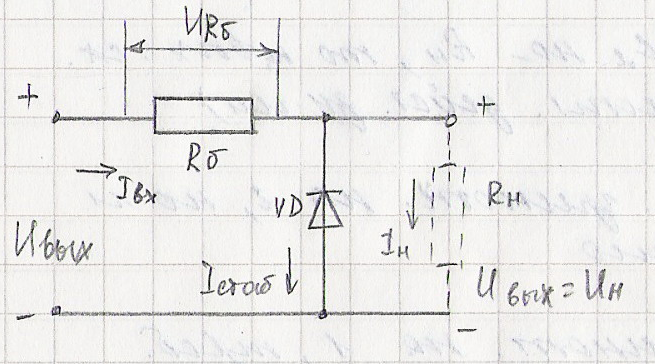 URб
+
+
Rб
Iвх
VD
Rн
Iн
Uвых
Iстаб
Uвых = Uн
-
-